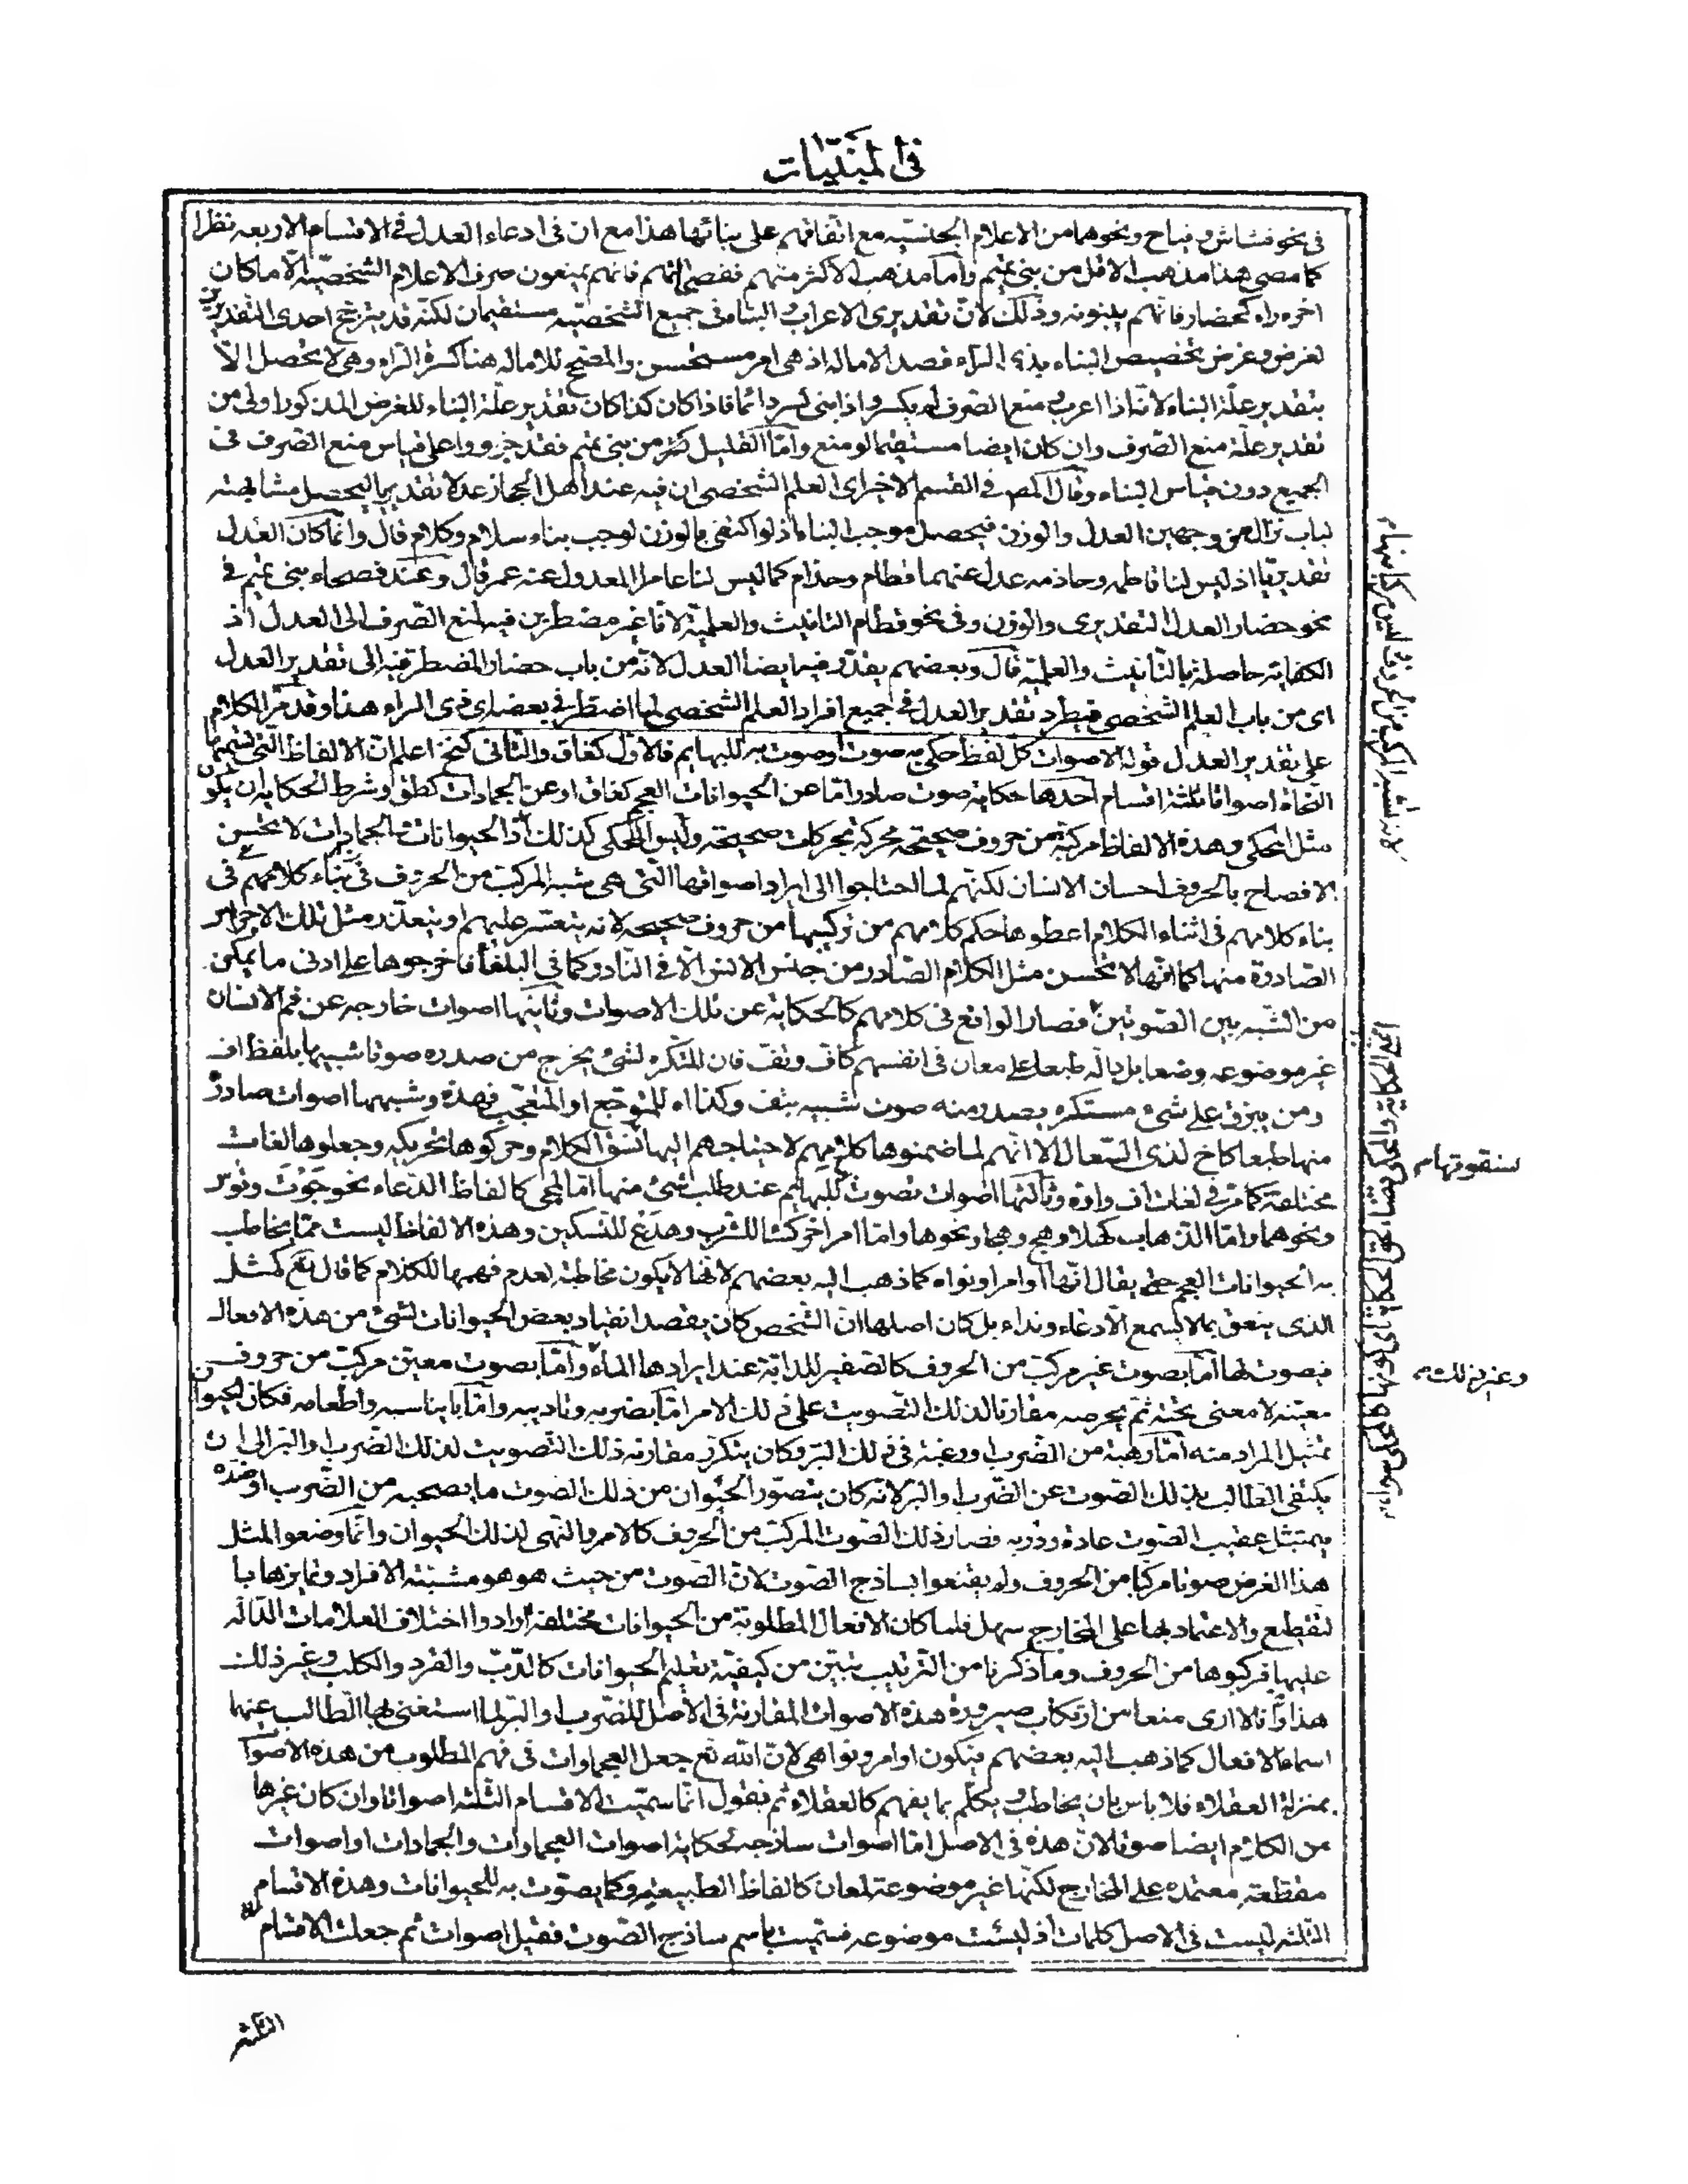 في المبنيات
في نحو فشاش وفياح ونحوهما من الاعلام الجنسيه مع اتفاقهم على بنائها هذا مع ان فى ادعاء العدل في الاقسام الاربعه نظرا
كما مضى هذا مذهب الاقل من بنى تميم وامّا مذهب الاكثر منهم فانهم يمنعون صرف الاعلام الشخصيّه الّا ما كان
اخره راء كحضار فانّهم يبنونه وذلك لانّ تقديرى الاعراب والبناء فى جميع الشخصيّه مستقيمان لكنّه قد يترجّح احدى التقديرين
لغرض وغرض تخصيص البناء بذى الرّاء قصد الاماله اذ هى امر مستحسن والمصحّح للاماله هنا كسرة الرّاء وهى لا تحصل الّا
بتقدير علّة البناء لانّه اذا اعرب ومنع الصّرف لم يكسر واذا بنى كسر دائما فاذا كان كذا كان تقدير علّة البناء للغرض المذكور اولى من
تقدير علّة منع الصّرف وان كان ايضا مستقيما لو منع وامّا القليل من بنى تميم فقد جروا على قياس منع الصّرف فى
الجميع دون قياس البناء وقال المص فى القسم الاخير اى العلم الشخصى ان فيه عند اهل الحجاز عدلا تقديريا ليحصل مشابهته
لباب نزال من وجهين العدل والوزن فيحصل موجب البناء اذ لو اكتفى بالوزن لوجب بناء سلام وكلام قال وانّما كان العدل
تقديريّا اذ ليس لنا فاطمه وحاذمه عدل عنهما فطام وحذام كما ليس لنا عامر المعدول عنه عمر قال وعند فصحاء بنى تميم فى
نحو حضار العدل التقديرى والوزن وفى نحو قطام التانيث والعلميّة لانّا غير مضطرين فيه لمنع الصّرف الى العدل اذ
الكفاية حاصلة بالتّانيث والعلميّه قال وبعضهم يقدّر فيه ايضا العدل لانّه من باب حضار المضطرّ فيه الى تقدير العدل
اى من باب العلم الشخصى فيطرد تقدير العدل فى جميع افراد العلم الشخصى لما اضطر فى بعضه اى ذى الراء هذا وقد مرّ الكلام
على تقدير العدل قوله الاصوات كلّ لفظ حكى به صوت او صوت به للبهايم فالاوّل كغاق والثّانى كنخ اعلم انّ الالفاظ التى تسميها
النّحاة اصواتا ثلثة اقسام احدها حكاية صوت صادر امّا عن الحيوانات العجم كغاق او عن الجمادات كطق وشرط الحكاية ان يكون
مثل المحكى وهذه الالفاظ مركبة من حروف صحيحه محركة بحركات صحيحه وليس المحكى كذلك اذ الحيوانات والجمادات لا تحسن
الافصاح بالحروف احسان الانسان لكنّهم لما احتاجوا الى ايراد اصواتها الّتى هى شبه المركب من الحروف فى اثناء كلامهم فى
بناء كلامهم فى اثناء الكلام اعطوها حكم كلامهم من تركيبها من حروف صحيحه لانه يتعسّر عليهم او يتعذّر مثل تلك الاجراس
الصّادرة منها كما انّها لا تحسن مثل الكلام الصّادر من جنس الانس الّا فى النّادر كما فى الببّغا فاخرجوها على ادنى ما يمكن
من الشّبه بين الصّوتين فصار الواقع فى كلامهم كالحكاية عن تلك الاصوات وثانيها اصوات خارجه عن فم الانسان
غير موضوعه وضعا بل دالّه طبعا على معان فى انفسهم كاف وتف فان المتكره لشىء يخرج من صدره صوتا شبيها بلفظ اف
ومن يبزق على شىء مستكره يصدر منه صوت شبيه بتف وكذا اه للمتوجّع او المتعجّب فهذه وشبهها اصوات صادرة
منها طبعا كاخ لذى السّعال الّا انّهم لمّا ضمنوها كلامهم لاحتياجهم اليها نسق الكلام وحركوها تحريكه وجعلوها لغات
مختلفة كما مرّ فى لغات اف واوه وثالثها اصوات تصوت للبهايم عند طلب شىء منها امّا المجى كالفاظ الدّعاء نحو جوت وتوتر
ونحوهما وامّا الذّهاب كهلا وهج وهجا ونحوها وامّا امر اخر كتشا للشّرب وهدع للتسكين وهذه الالفاظ ليست ممّا يخاطب
به الحيوانات العجم حتى يقال انّها اوامر او نواه كما ذهب اليه بعضهم لانها لا يكون مخاطبة لعدم فهمها للكلام كما قال تع كمثل
الذى ينعق بما لا يسمع الّا دعاء ونداء بل كان اصلها انّ الشّخص كان يقصد انقياد بعض الحيوانات لشىء من هذه الافعال
فيصوت لها امّا بصوت غير مركّب من الحروف كالصّفير للدابّة عند ايرادها الماء وامّا بصوت معيّن مركّب من حروف
معيّنه لا معنى تحته ثم يحرضه مقارنا لذلك التّصويت على ذلك الامر امّا بضربه وتاديبه وامّا بايناسه واطعامه فكان الحيوان
يمتثل المراد منه امّا رهبة من الضّرب او رغبة فى ذلك البرّ وكان يتكرّر مقارنه ذلك التّصويت لذلك الضّرب او البرّ الى ان
يكتفى الطّالب بذلك الصّوت عن الضّرب او البرّ لانّه كان يتصوّر الحيوان من ذلك الصّوت ما يصحبه من الضّرب او ضدّه
فيمتثل عقيب الصّوت عادة ودربه فصار ذلك الصّوت المركّب من الحروف كالامر والنّهى لذلك الحيوان وانّما وضعوا لمثل
هذا الغرض صوتا مركّبا من الحروف ولم يقنعوا بساذج الصّوت لانّ الصّوت من حيث هو هو مشتبه الافراد وتمايزها با
لتقطيع والاعتماد بها على المخارج سهل فلما كان الافعال المطلوبة من الحيوانات مختلفة ارادوا اختلاف العلامات الدّالّه
عليها فركبوها من الحروف وما ذكرنا من الترتيب يتبيّن من كيفيّة تعليم الحيوانات كالدّبّ والقرد والكلب وغير ذلك
هذا وانا لا ارى منعا من ارتكاب صيرورة هذه الاصوات المقارنة فى الاصل للضّرب او البرّ لما استغنى بها الطّالب عنهما
اسماء الافعال كما ذهب اليه بعضهم فيكون اوامر ونواهى لانّ الله تع جعل العجماوات فى فهم المطلوب من هذه الاصوات
بمنزلة العقلاء فلا باس بان يخاطب ويكلّم بما يفهم كالعقلاء ثم نقول انّما سمّيت الاقسام الثّلثه اصواتا وان كان غيرها
من الكلام ايضا صوتا لانّ هذه فى الاصل امّا اصوات ساذجه كحكاية اصوات العجماوات والجمادات او اصوات
مقطّعة معتمده على المخارج لكنّها غير موضوعة لمعان كالفاظ الطبيعيّه وكما يصوّت به للحيوانات وهذه الاقسام
الثّلثه ليست فى الاصل كلمات اذ ليست موضوعه فسمّيت باسم ساذج الصّوت فقيل اصوات ثم جعلت الاقسام
نسقوتهام
وغير ذلك
الثلثه